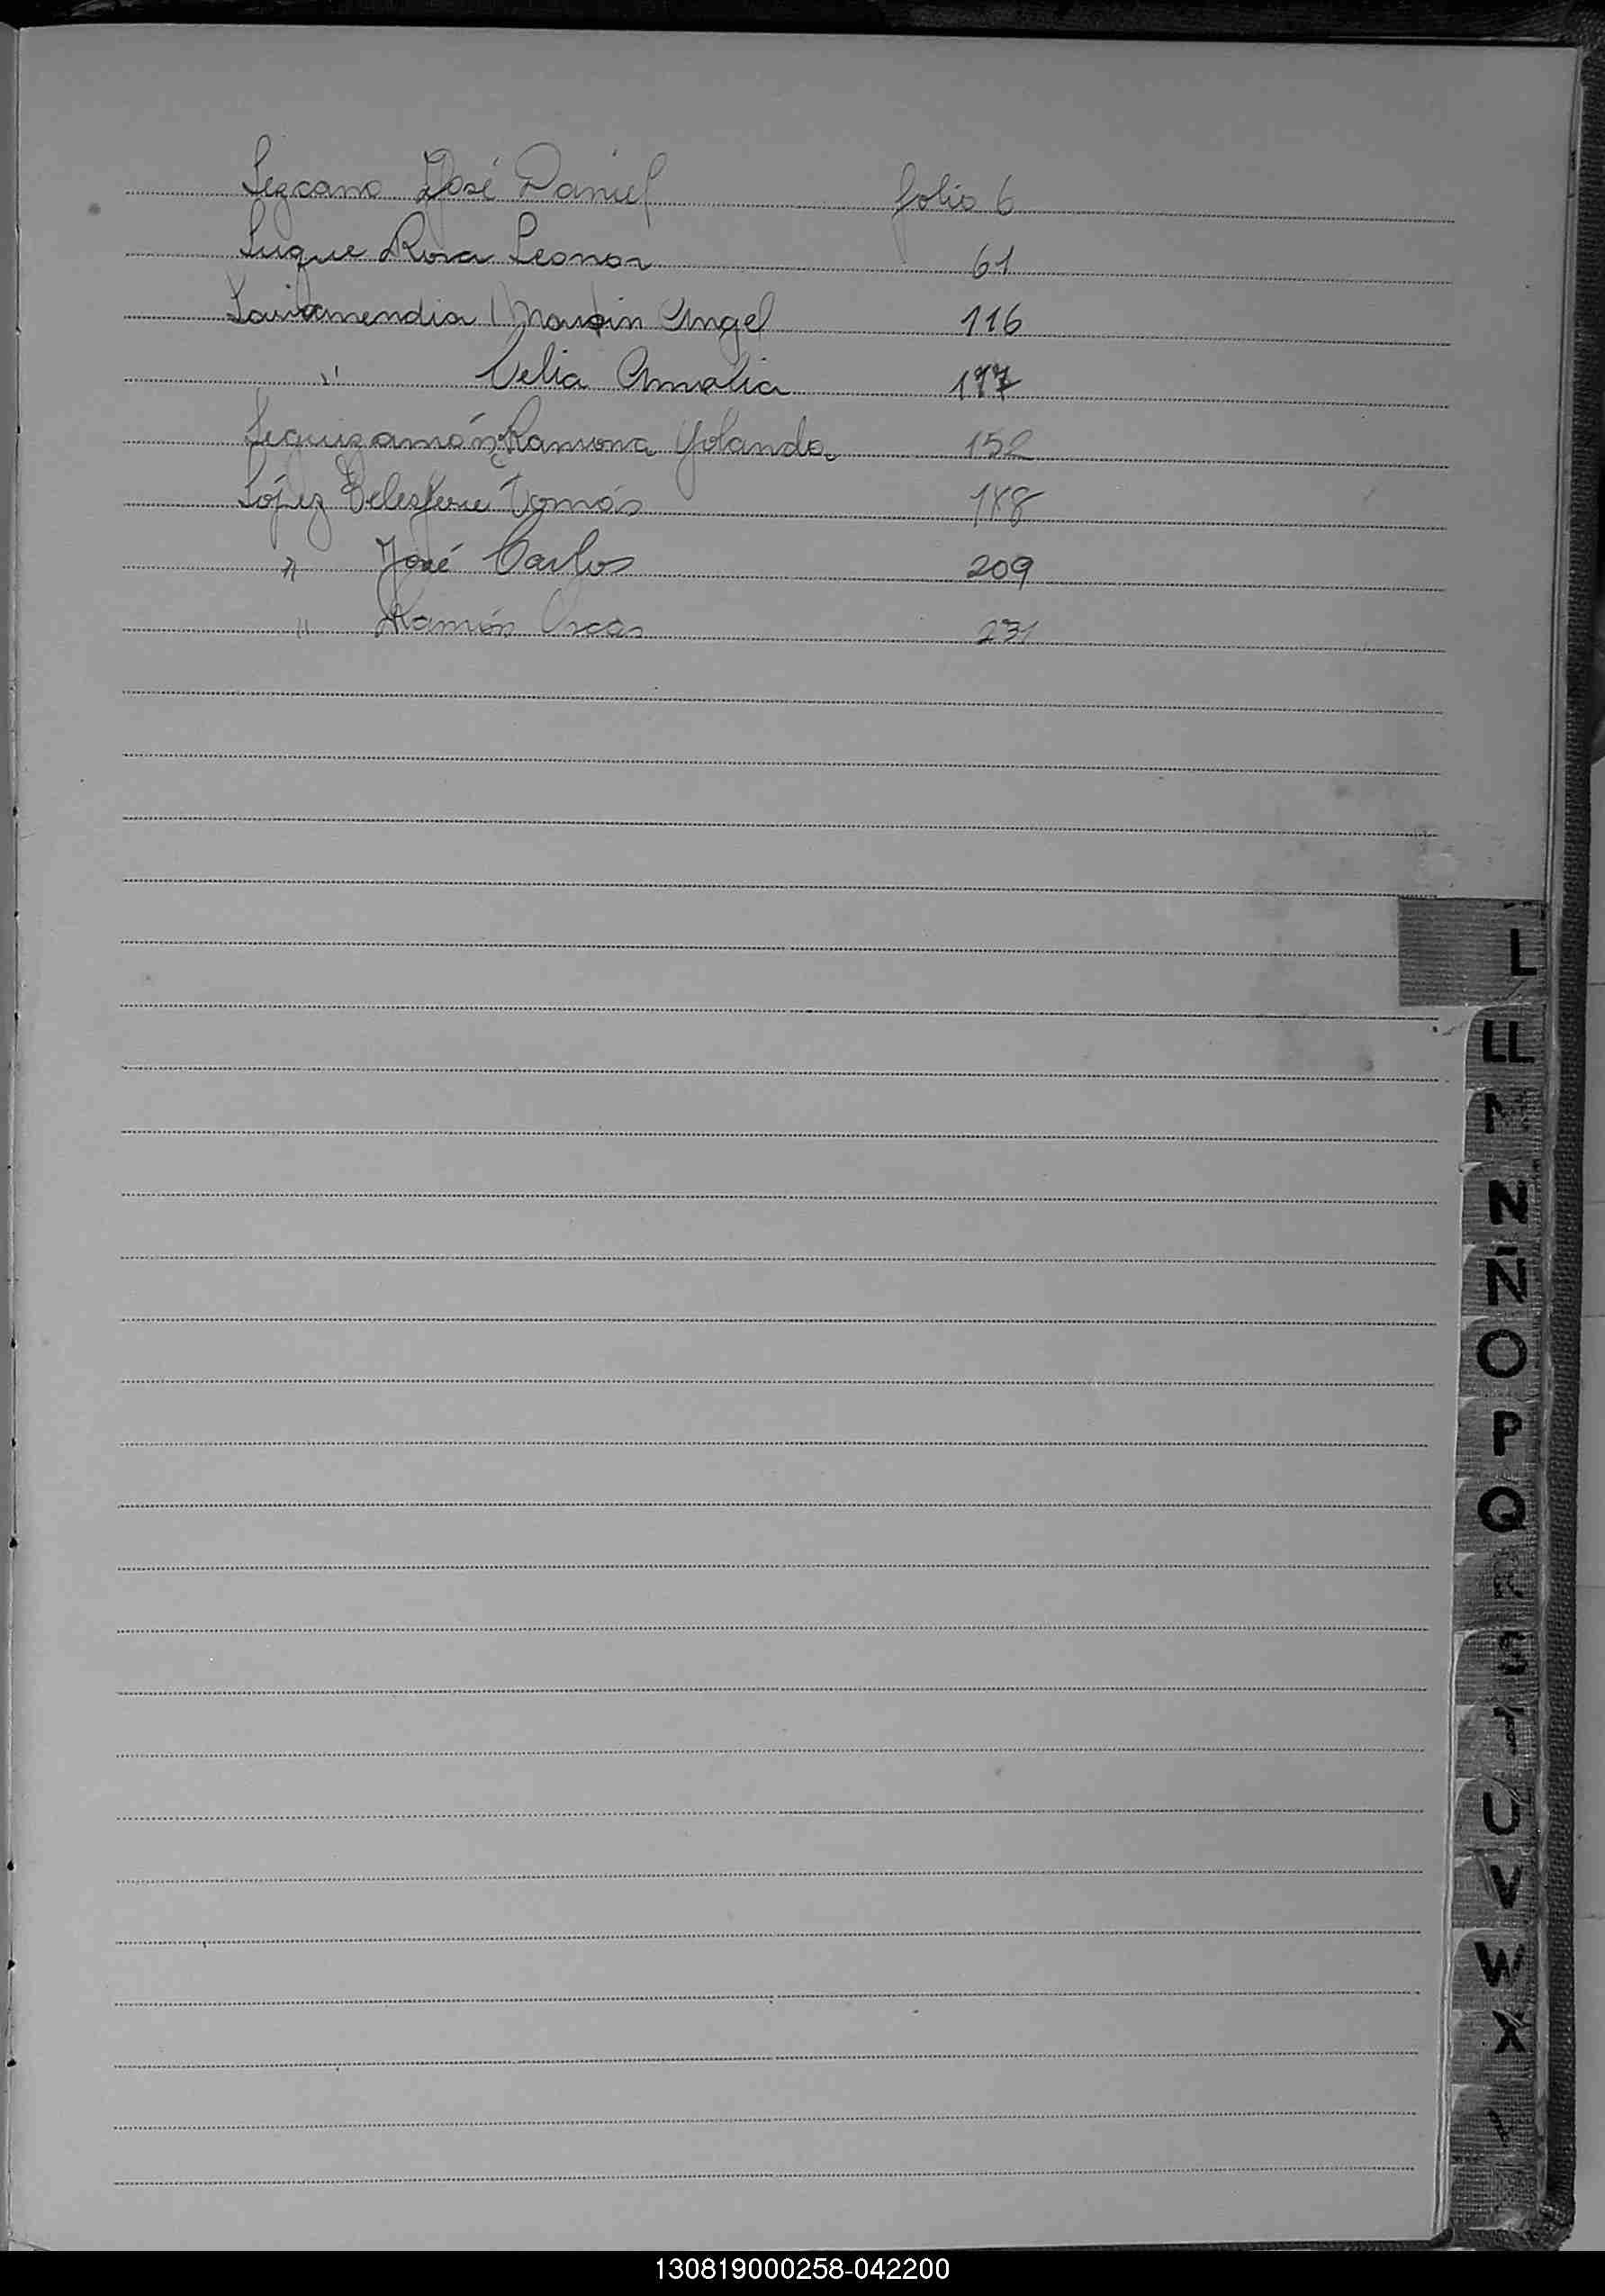 Lezcano José Daniel folio 6
Luque Rosa Leonor 61
Martin Angel 116
" Celia Amalia 177
Leguizamón Ramona Yolanda 152
López Telesforo Tomás 188
" José Carlos 209
" Ramón Oscar 231
L
LL
M
N
Ñ
O
P
Q
R
S
T
U
V
W
X
130819000258-042200